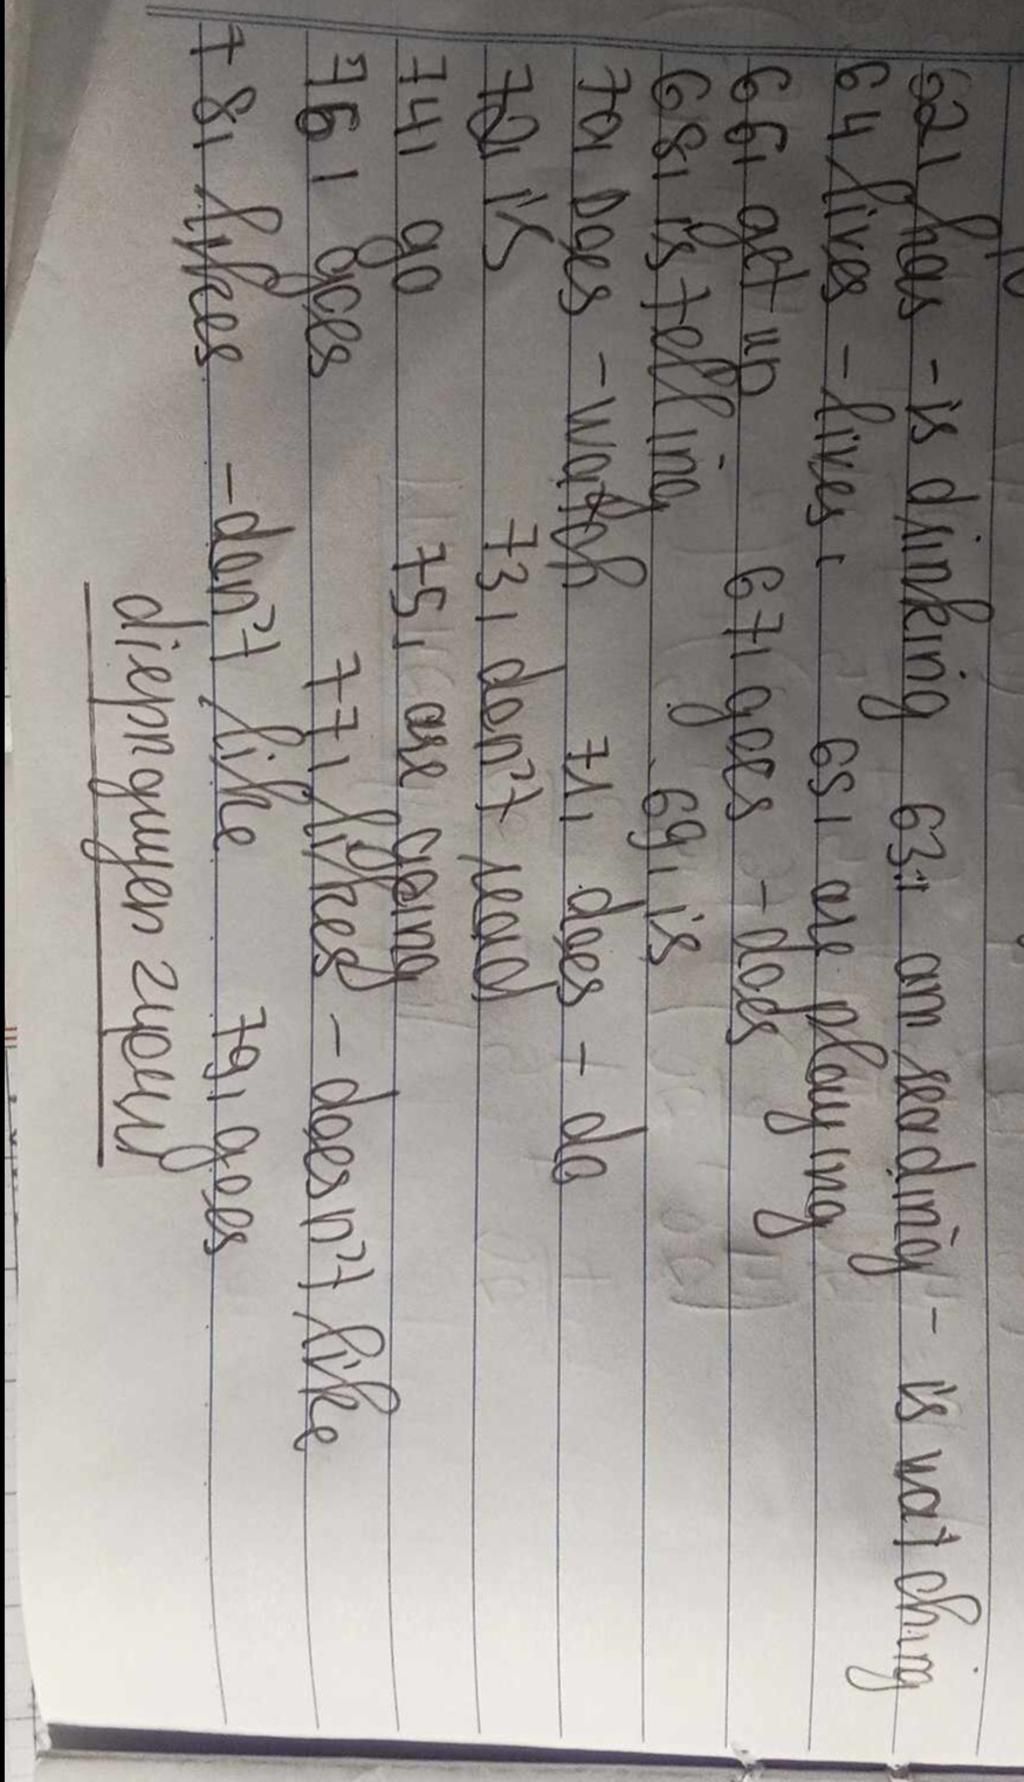 62, has - is drinking 63, am reading - is watching
64 lives - lives, 65, are playing
66, get up 67, goes - does
68, is telling 69, is
70, Does - watch 71, does - do
72, is 73, don't read
74, go 75, are going
76, goes 77, likes - doesn't like
78, likes - don't like 79, goes